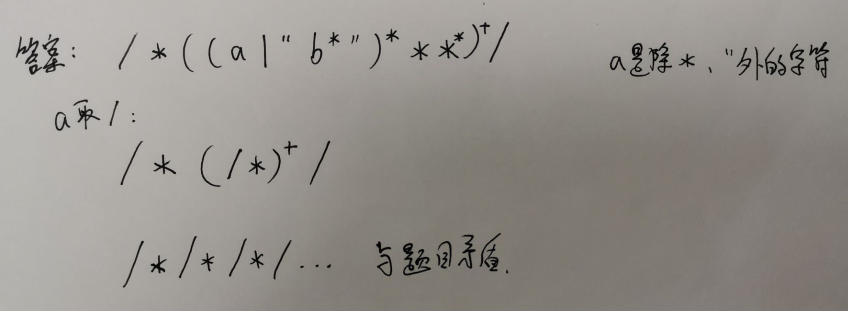 答案: /*((a|"b*")****)+/ a是除*、"外的字符
a取/:
/*(/*)+/
/*/*/*/... 与题目矛盾.